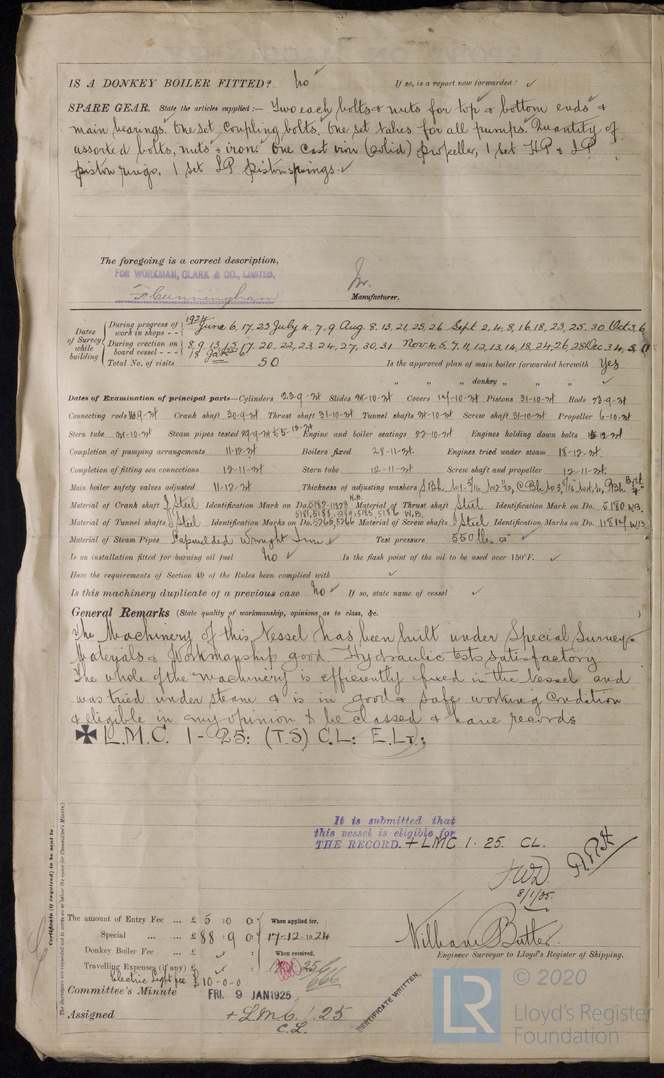 IS A DONKEY BOILER FITTED? No ✓ If so, is a report now forwarded? ✓
SPARE GEAR. State the articles supplied:— Two each bolts & nuts for top & bottom ends &
main bearings. One set coupling bolts. One set valves for all pumps. Quantity of
assorted bolts, nuts & iron. One cast iron (solid) propeller, 1 set HP & IP
piston rings, 1 set LP piston springs. ✓
The foregoing is a correct description,
FOR WORKMAN, CLARK & CO., LIMITED,
F Cunningham
Manufacturer.
Dates of Survey while building
During progress of work in shops - - 1924 June 6, 17, 23 July 4, 7, 9 Aug 8, 13, 21, 25, 26 Sept 2, 4, 8, 16, 18, 23, 25, 30 Oct 3, 6
During erection on board vessel - - - 8, 9, 13, 15, 17, 20, 22, 23, 24, 27, 30, 31 Nov 4, 5, 7, 11, 12, 13, 14, 18, 24, 26, 28 Dec 3, 4, 5
Total No. of visits 50 Is the approved plan of main boiler forwarded herewith Yes
" " " donkey " " "
Dates of Examination of principal parts—Cylinders 23-9-24 Slides 31-10-24 Covers 14-10-24 Pistons 31-10-24 Rods 23-9-24
Connecting rods Crank shaft 30-9-24 Thrust shaft 31-10-24 Tunnel shafts 31-10-24 Screw shaft 31-10-24 Propeller 6-10-24
Stern tube 31-10-24 Steam pipes tested Engine and boiler seatings 22-10-24 Engines holding down bolts
Completion of pumping arrangements 11-12-24 Boilers fixed 28-11-24 Engines tried under steam 18-12-24
Completion of fitting sea connections 12-11-24 Stern tube 12-11-24 Screw shaft and propeller 12-11-24
Main boiler safety valves adjusted 11-12-24 Thickness of adjusting washers
Material of Crank shaft Steel Identification Mark on Do. Material of Thrust shaft Steel Identification Mark on Do. 5180 WB.
Material of Tunnel shafts Steel Identification Marks on Do. Material of Screw shafts Steel Identification Marks on Do.
Material of Steam Pipes Lapwelded Wrought Iron ✓ Test pressure 550 lbs
Is an installation fitted for burning oil fuel No ✓ Is the flash point of the oil to be used over 150°F. ✓
Have the requirements of Section 49 of the Rules been complied with ✓
Is this machinery duplicate of a previous case No ✓ If so, state name of vessel ✓
General Remarks (State quality of workmanship, opinions as to class, &c.
The Machinery of this Vessel has been built under Special Survey.
Materials & Workmanship good. Hydraulic tests satisfactory.
The whole of the machinery is efficiently fixed in the vessel and
was tried under steam & is in good & safe working condition
& eligible in my opinion to be classed & have records
✠ L.M.C. 1-25: (T.S) C.L: E.Lt:
It is submitted that
this vessel is eligible for
THE RECORD. + LMC 1.25 CL.
8/1/25.
Certificate (if required) to be sent to
The amount of Entry Fee ... £ 5 : 0 : 0 When applied for,
Special ... £ 88 : 9 : 0 17-12-1924
Donkey Boiler Fee ... £ ✓ When received,
Travelling Expenses (if any) £ ✓
Electric Light fee £10-0-0
William Butler
Engineer Surveyor to Lloyd's Register of Shipping.
Committee's Minute FRI. 9 JAN 1925
Assigned + L.M.C. 1.25
C.L.
CERTIFICATE WRITTEN.
LR
© 2020
Lloyd's Register
Foundation